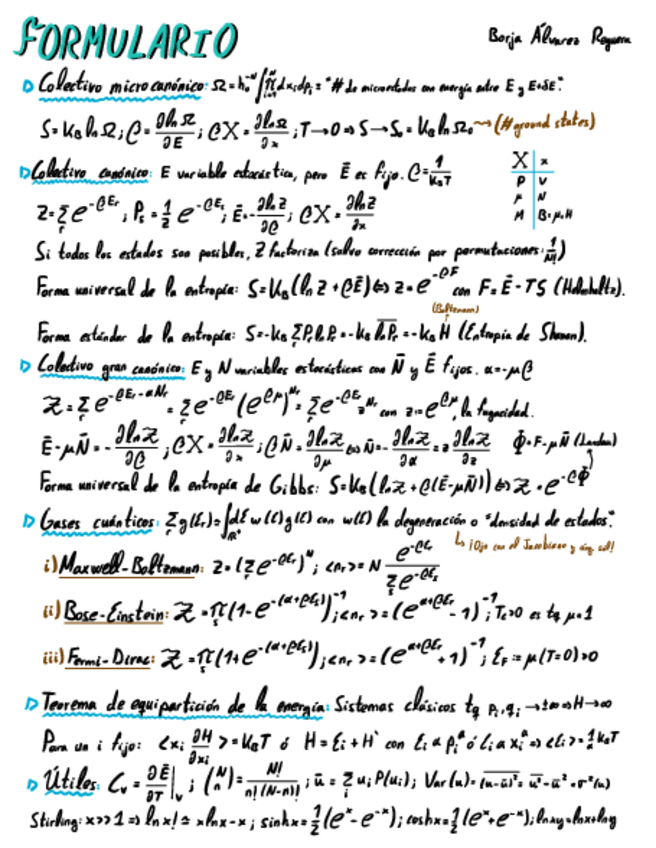 FORMULARIO
Borja Álvarez Reguera
▷ Colectivo microcanónico: Ω = h₀^-N ∫ ∏ dxᵢdpᵢ = "# de microestados con energía entre E y E+δE".
S = K_B ln Ω ; β = ∂lnΩ/∂E ; βX = ∂lnΩ/∂x ; T→0 ⇒ S→S₀ = K_B ln Ω₀ → (# ground states)
▷ Colectivo canónico: E variable estocástica, pero Ē es fijo. β = 1/(K_B T)
X | x
P | V
μ | N
M | B=μ₀H
Z = Σ_r e^(-βE_r) ; P_s = 1/Z e^(-βE_s) ; Ē = -∂lnZ/∂β ; βX = ∂lnZ/∂x
Si todos los estados son posibles, Z factoriza (salvo corrección por permutaciones: 1/N!)
Forma universal de la entropía: S = K_B(ln Z + βĒ) ⇔ Z = e^(-βF) con F = Ē - TS (Helmholtz).
(Boltzmann)
Forma estándar de la entropía: S = -K_B Σ P_r ln P_r = -K_B ln P_r = -K_B H (Entropía de Shanon).
▷ Colectivo gran canónico: E y N variables estocásticas con N̄ y Ē fijos. α = -μβ
𝒵 = Σ_r e^(-βE_r - αN_r) = Σ_r e^(-βE_r) (e^(βμ))^(N_r) = Σ_r e^(-βE_r) z^(N_r) con z = e^(βμ), la fugacidad.
Ē - μN̄ = -∂ln𝒵/∂β ; βX = ∂ln𝒵/∂x ; βN̄ = ∂ln𝒵/∂μ ⇔ N̄ = -∂ln𝒵/∂α = z ∂ln𝒵/∂z Φ = F - μN̄ (Landau)
Forma universal de la entropía de Gibbs: S = K_B(ln𝒵 + β(Ē - μN̄)) ⇔ 𝒵 = e^(-βΦ)
▷ Gases cuánticos: Σ_r g(ε_r) = ∫_ℝ⁺ dε w(ε)g(ε) con w(ε) la degeneración o "densidad de estados".
↳ ¡Ojo con el Jacobiano y
i) Maxwell-Boltzmann: Z = (Σ_r e^(-βε_r))^N ; <n_r> = N e^(-βε_r) / Σ_s e^(-βε_s)
ii) Bose-Einstein: 𝒵 = ∏_s (1 - e^(-(α+βε_s)))^-1 ; <n_r> = (e^(α+βε_r) - 1)^-1 ; T_c>0 es tq μ=1
iii) Fermi-Dirac: 𝒵 = ∏_s (1 + e^(-(α+βε_s))) ; <n_r> = (e^(α+βε_r) + 1)^-1 ; ε_F := μ(T=0)>0
▷ Teorema de equipartición de la energía: Sistemas clásicos tq pᵢ,qᵢ → ±∞ ⇒ H→∞
Para un i fijo: <xᵢ ∂H/∂xᵢ> = K_B T ó H = εᵢ + H` con εᵢ ∝ pᵢ² ó εᵢ ∝ xᵢ² ⇒ <εᵢ> = 1/2 K_B T
▷ Útiles: C_v = ∂Ē/∂T |_v ; (N n) = N!/(n!(N-n)!) ; ū = Σ_i uᵢP(uᵢ) ; Var(u) = (u-ū)² = u² - ū² = σ²(u)
Stirling: x>>1 ⇒ ln x! ≃ x ln x - x ; sinh x = 1/2 (e^x - e^-x) ; cosh x = 1/2 (e^x + e^-x) ; ln xy = ln x + ln y